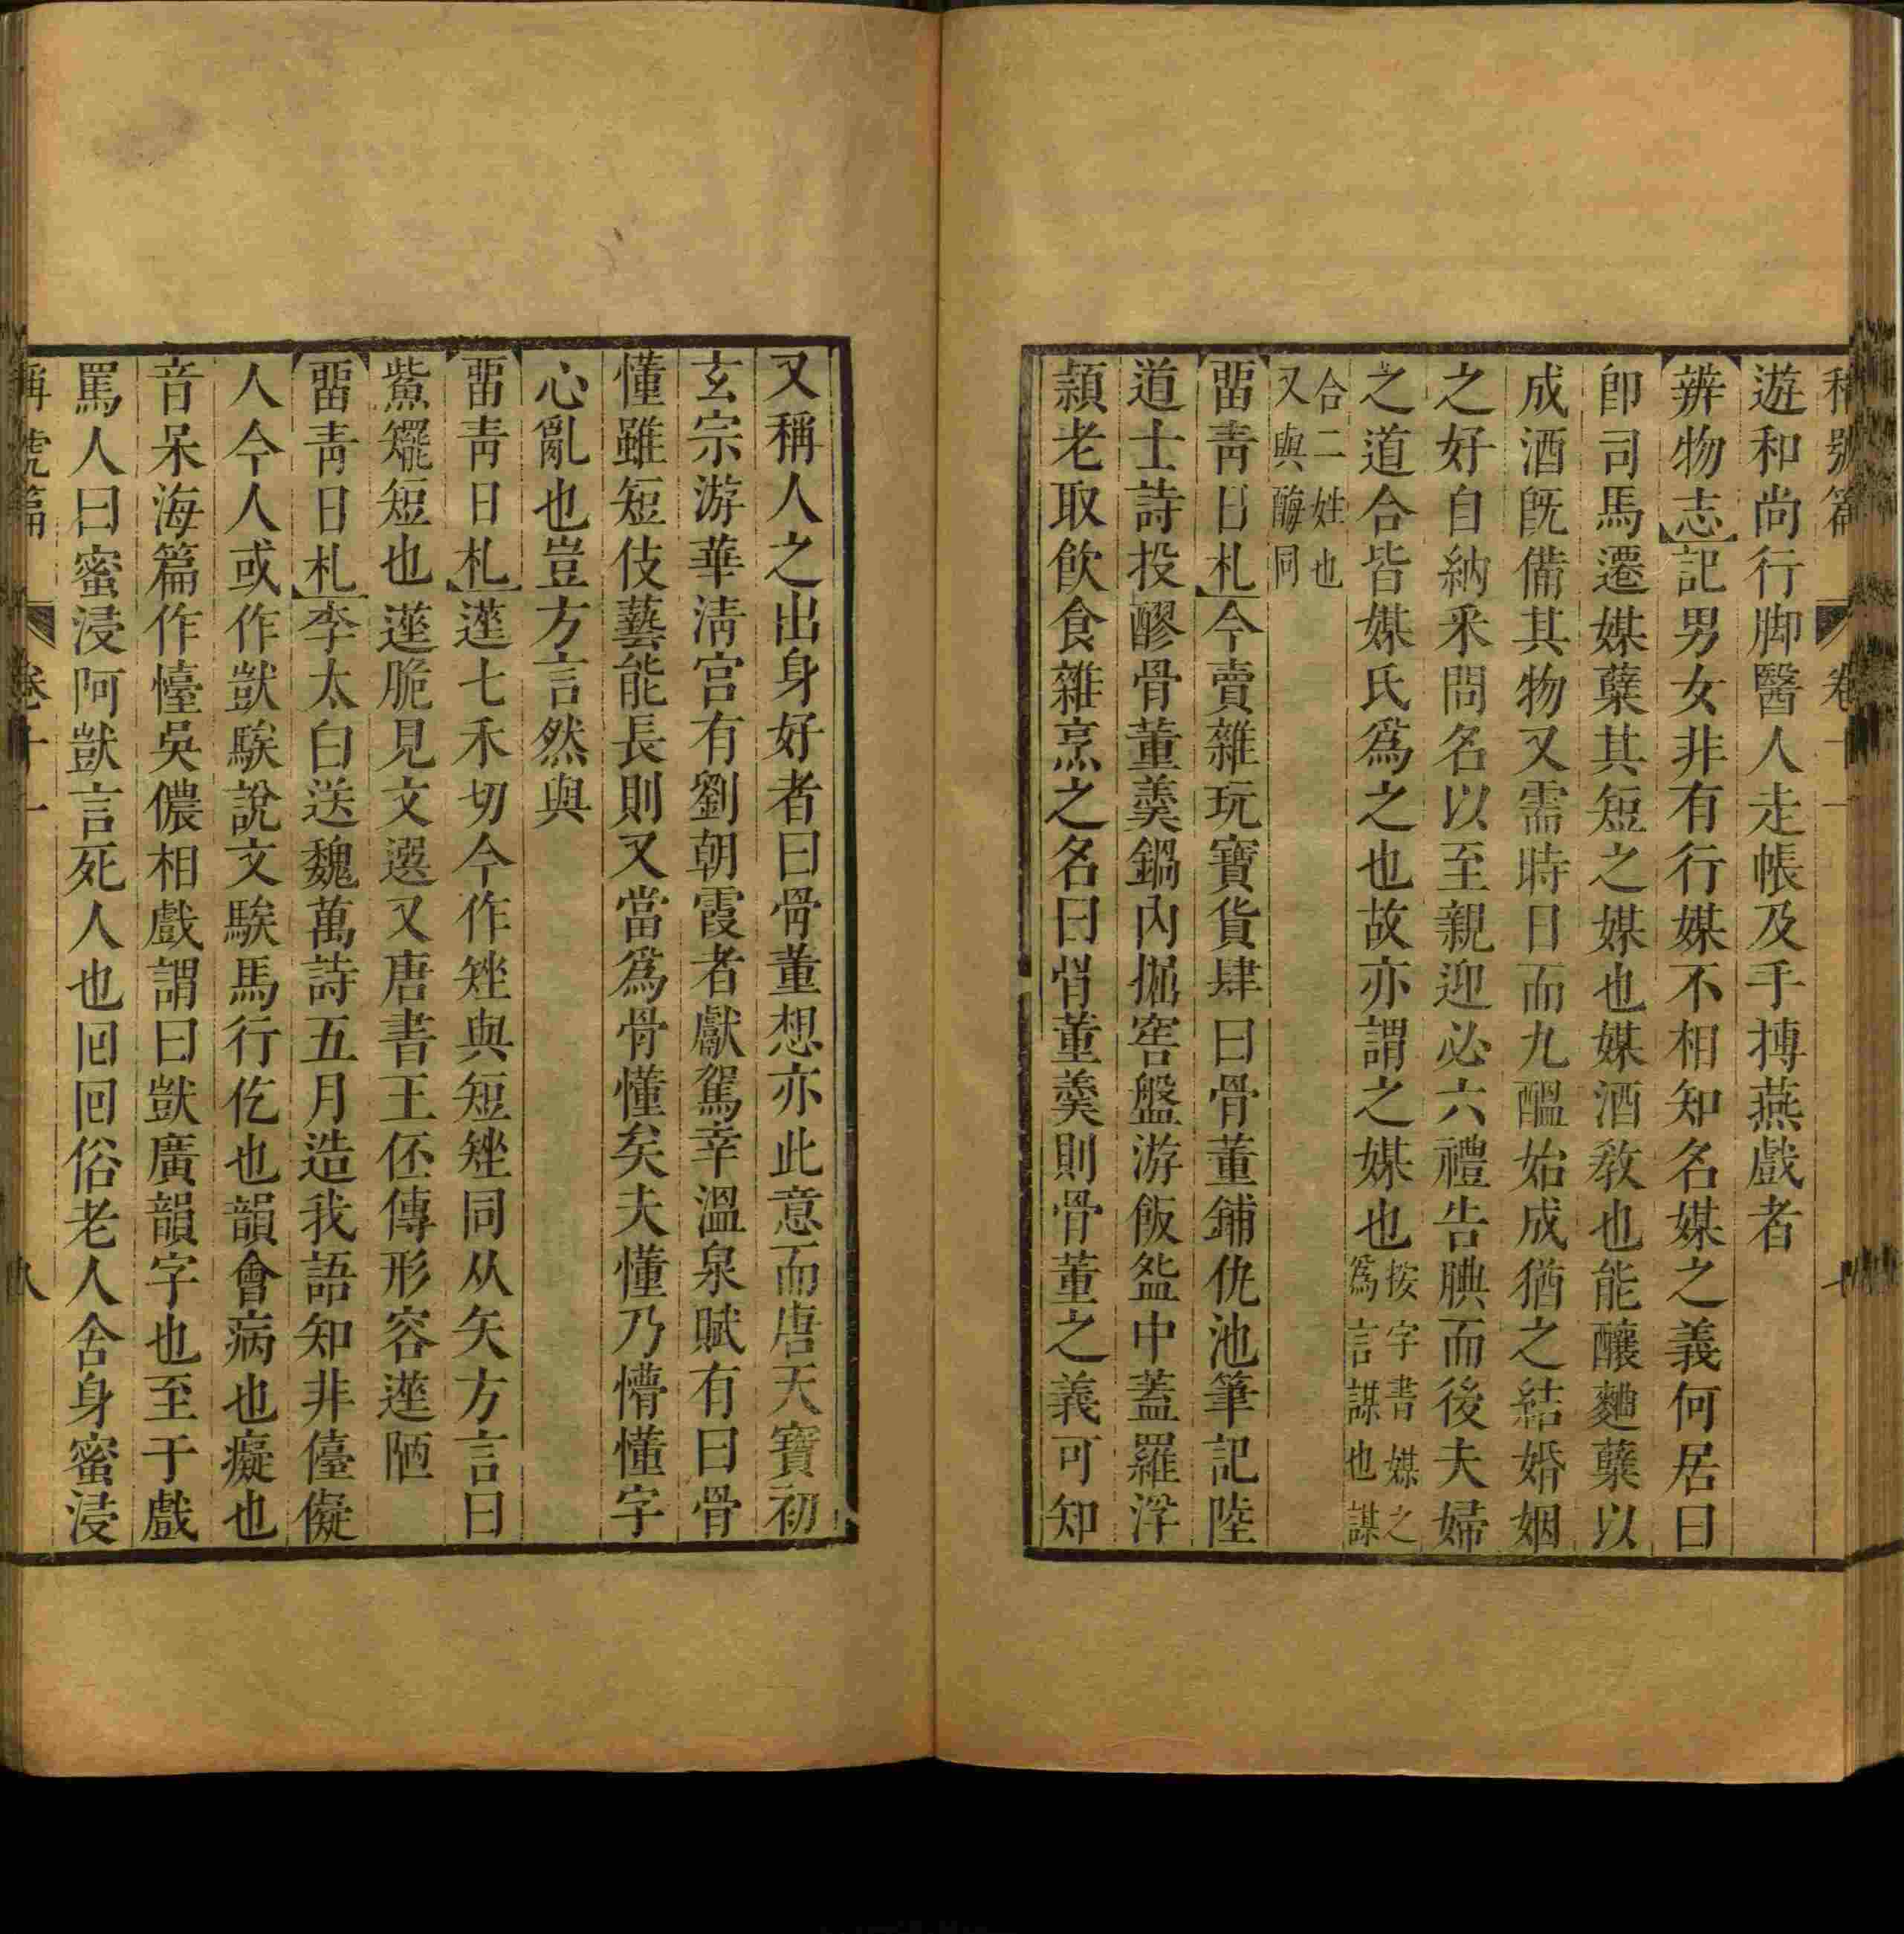 稱號篇 卷十一 七
遊和尚行脚醫人走帳及手摶燕戲者
辨物志記男女非有行媒不相知名媒之義何居曰
卽司馬遷媒糵其短之媒也媒酒教也能釀麯糵以
成酒旣備其物又需時日而九醞始成猶之結婚姻
之好自納采問名以至親迎必六禮告腆而後夫婦
之道合皆媒氏爲之也故亦謂之媒也按字書媒之爲言謀也謀
合二姓也又與酶同
畱青日札今賣雜玩寶貨肆曰骨董鋪仇池筆記陸
道士詩投醪骨董羹鍋內掘窖盤游飯盌中蓋羅浮
頴老取飮食雜烹之名曰骨董羹則骨董之義可知
又稱人之出身好者曰骨董想亦此意而唐天寶初
玄宗游華淸宫有劉朝霞者獻駕幸溫泉賦有曰骨
懂雖短伎藝能長則又當爲骨懂矣夫懂乃懵懂字
心亂也豈方言然與
畱青日札䠡七禾切今作矬與短矬同从矢方言曰
鮆䂕短也䠡脆見文選又唐書王伾傳形容䠡陋
畱青日札李太白送魏萬詩五月造我語知非儓儗
人今人或作獃騃說文騃馬行仡也韻會病也癡也
音呆海篇作懛吳儂相戲謂曰獃廣韻字也至于戲
罵人曰蜜浸阿獃言死人也回回俗老人舍身蜜浸
稱號篇 卷十一 八